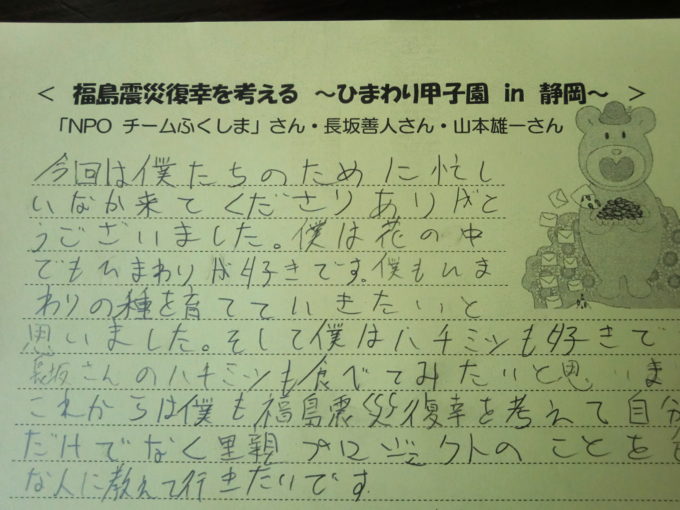 ＜ 福島震災復幸を考える ～ひまわり甲子園 in 静岡～ ＞
「NPO チームふくしま」さん・長坂善人さん・山本雄一さん
今回は僕たちのために忙し
いなか来てくださりありがと
うございました。僕は花の中
でもひまわりが好きです。僕もひま
わりの種を育てていきたいと
思いました。そして僕はハチミツも好きで
長坂さんのハチミツも食べてみたいと思いま
これからは僕も福島震災復幸を考えて自分
だけでなく里親プロジェクトのことを
な人に教えて行きたいです